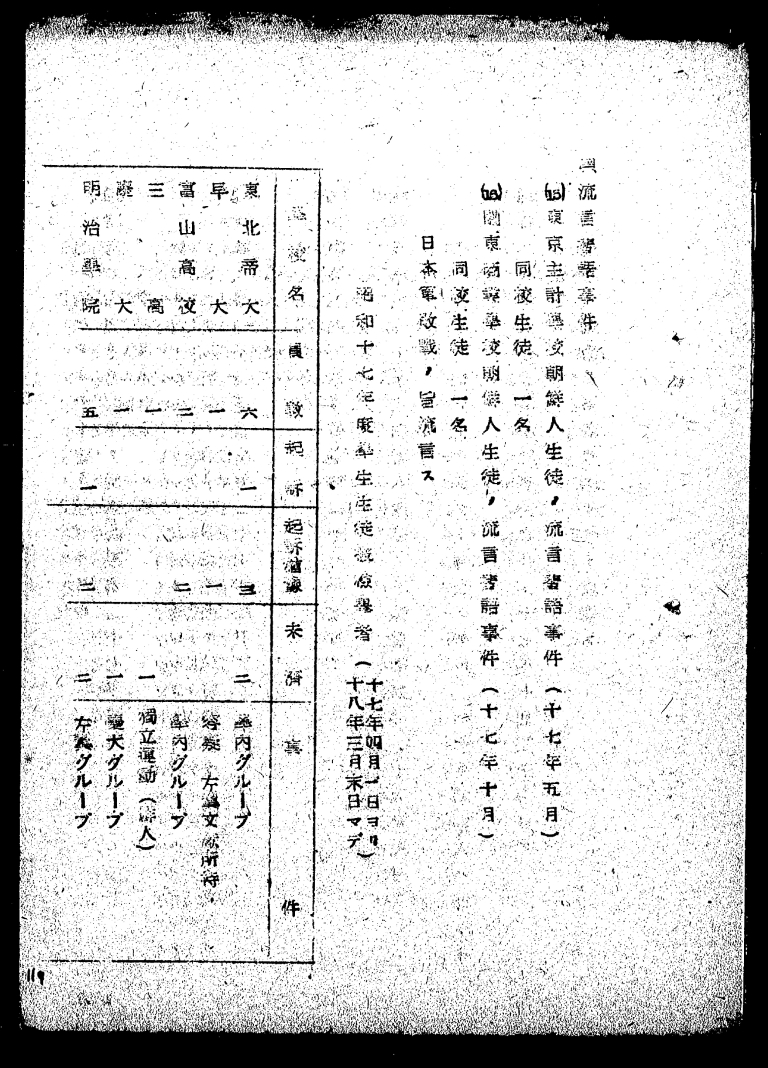 流言蜚語事件
(15)東京主計學校朝鮮人生徒ノ流言蜚語事件(十七年五月)
同校生徒 一名
(16)關東 學校朝鮮人生徒ノ流言蜚語事件(十七年十月)
同校生徒 一名
日本軍敗戰ノ旨流言ス
昭和十七年度學生生徒被檢擧者(十七年四月一日ヨリ十八年三月末日マデ)
學校名 員數 起訴 起訴猶豫 未濟 事件
東北帝大 六 一 三 二 學內グループ
早大 一 一 容疑 左翼文獻所持、
富山高校 二 二 學內グループ
三高 一 一 獨立運動(鮮人)
慶大 一 一 慶大グループ
明治學院 五 一 二 二 左翼グループ
119